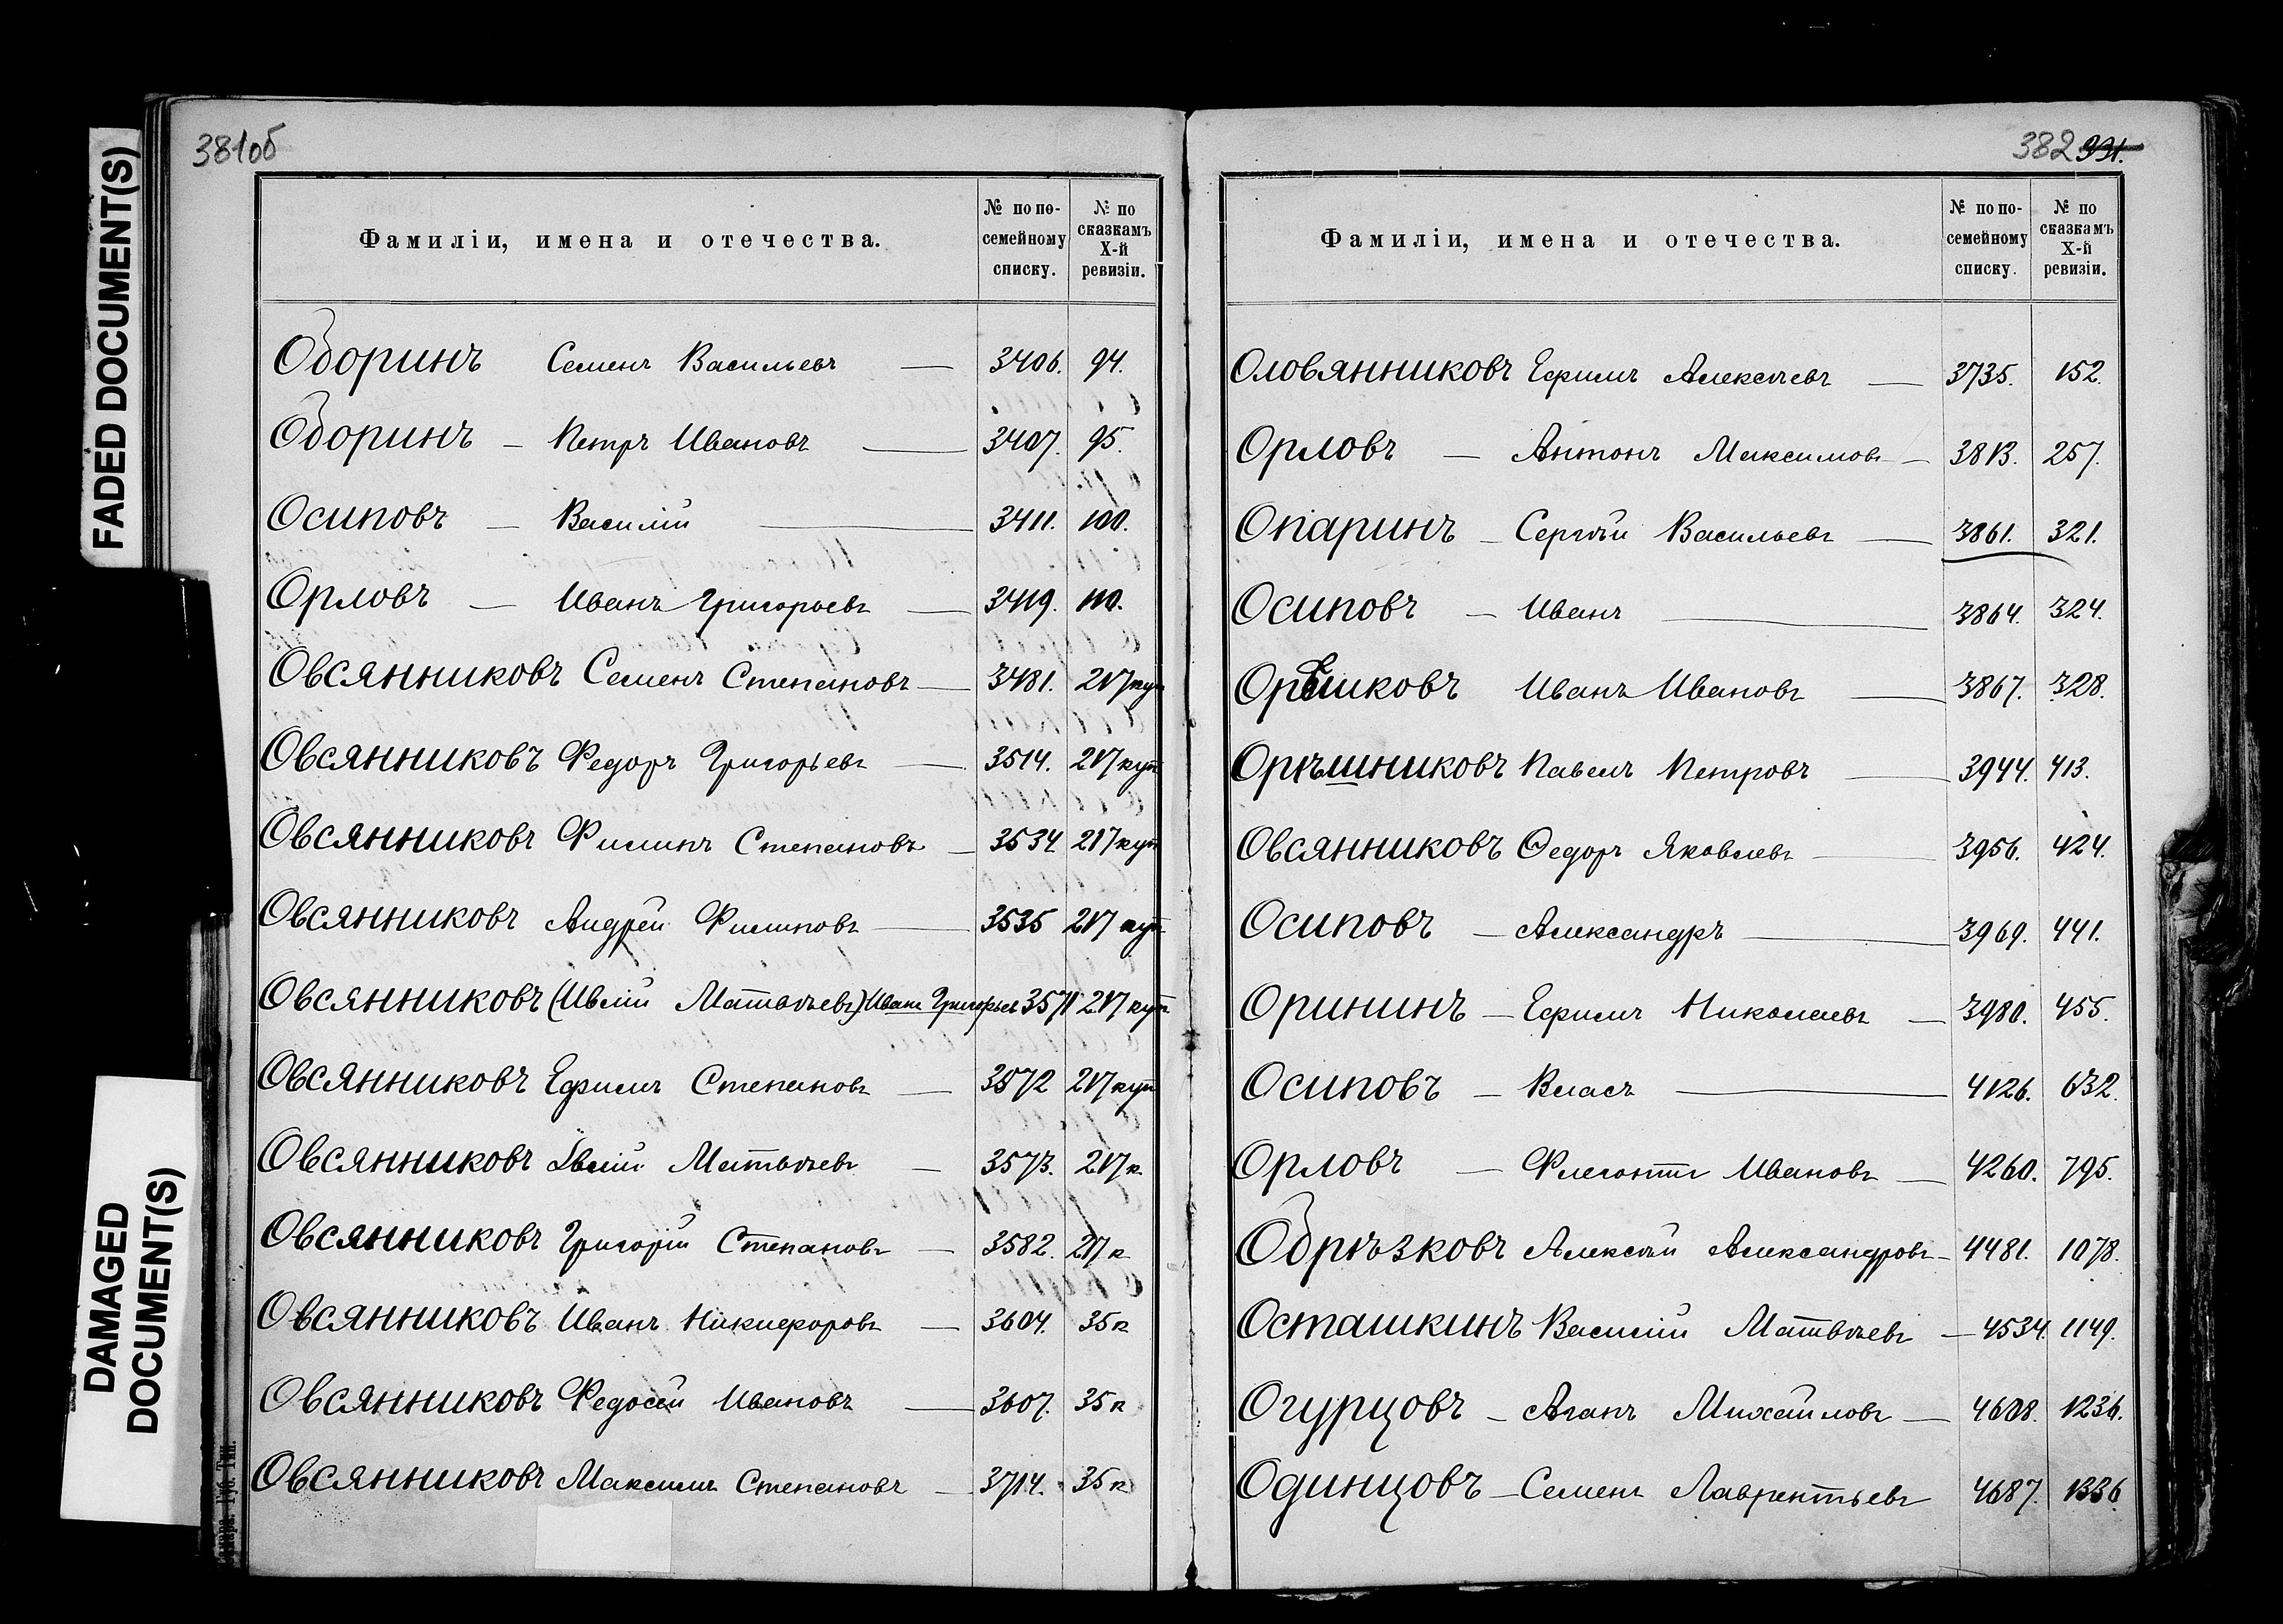 FADED DOCUMENT(S)
DAMAGED
DOCUMENT(S)
381об
Фамиліи, имена и отечества.
№ по по-
семейному
списку.
№ по
сказкамъ
X-й
ревизіи.
Оборинъ Семенъ Васильевъ — 3406. 94.
Оборинъ — Петръ Ивановъ — 3407. 95.
Осиповъ — Василій — 3411. 100.
Орловъ — Иванъ Григорьевъ — 3419. 110.
Овсянниковъ Семенъ Степановъ — 3481. 217 куп
Овсянниковъ Федоръ Григорьевъ — 3514. 217 куп
Овсянниковъ Филипъ Степановъ — 3534 217 куп
Овсянниковъ Андрей Филиповъ — 3535 217 куп
Овсянниковъ (Ивлій Матвѣевъ) Иванъ Григорьев 3571 217 куп
Овсянниковъ Ефимъ Степановъ — 3572 217 куп
Овсянниковъ Матвѣевъ — 3573. 217 к
Овсянниковъ Григорій Степановъ — 3582. 217 к
Овсянниковъ Иванъ Никифоровъ — 3604. 35 к
Овсянниковъ Федосей Ивановъ — 3607. 35 к
Овсянниковъ Максимъ Степановъ — 3714. 35 к
Губ. Тип.
382 331.
Фамиліи, имена и отечества.
№ по по-
семейному
списку.
№ по
сказкамъ
X-й
ревизіи.
Оловянниковъ Ефимъ Алексѣевъ — 3735. 152.
Орловъ — Антонъ Максимовъ — 3813. 257.
Опаринъ — Сергѣй Васильевъ — 3861. 321.
Осиповъ — Иванъ — 3864. 324.
Орѣшковъ Иванъ Ивановъ — 3867. 328.
Орѣшниковъ Павелъ Петровъ — 3944. 413.
Овсянниковъ Ѳедоръ Яковлевъ — 3956. 424.
Осиповъ — Александръ — 3969. 441.
Орининъ — Ефимъ Николаевъ — 3980. 455.
Осиповъ — Власъ — 4126. 632.
Орловъ — Флегонтъ Ивановъ — 4260. 795.
Обрѣзковъ Алексѣй Александровъ — 4481. 1078.
Осташкинъ Василій Матвѣевъ — 4534. 1149.
Огурцовъ — Агапъ Михайловъ — 4608. 1236.
Одинцовъ — Семенъ Лаврентьевъ 4687. 1336.